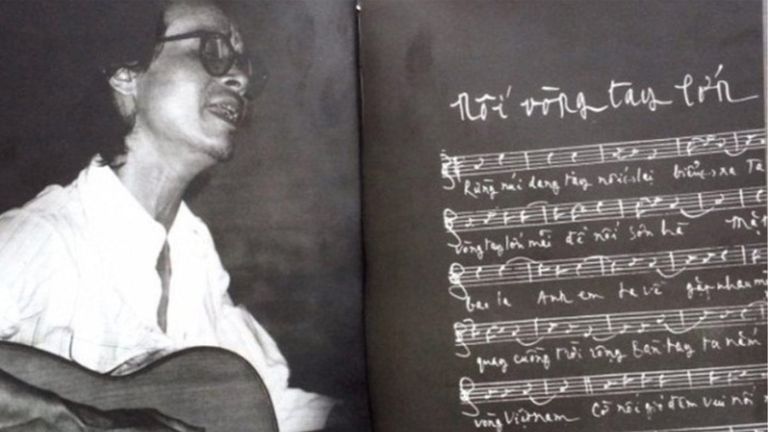 nối vòng tay lớn
Rừng núi dang tay nối lại biển xa Ta
vòng tay lớn mãi để nối sơn hà Mặt
bao la Anh em ta về gặp nhau
quay cuồng trời rộng Bàn tay ta nắm
vòng Việt Nam Cờ nối gió đêm vui nối